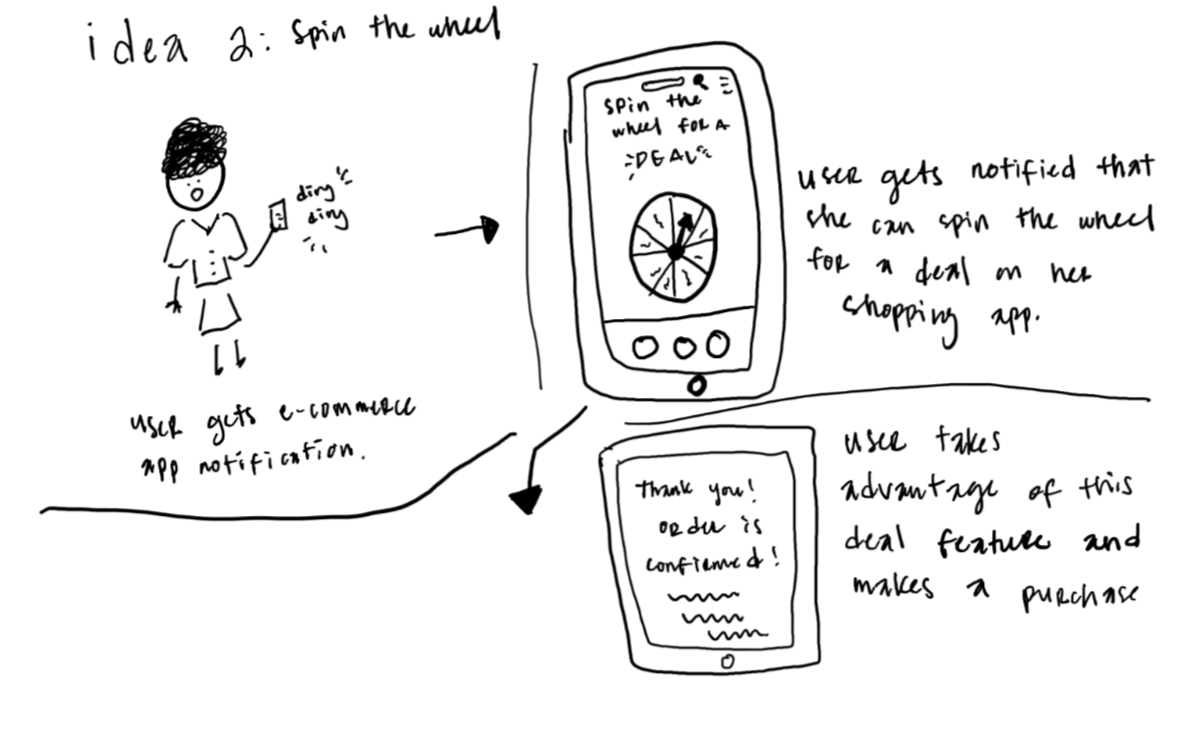 idea 2: spin the wheel
ding
ding
user gets e-commerce
app notification.
spin the
wheel for a
DEAL
user gets notified that
she can spin the wheel
for a deal on her
shopping app.
Thank you!
order is
confirmed!
user takes
advantage of this
deal feature and
makes a purchase